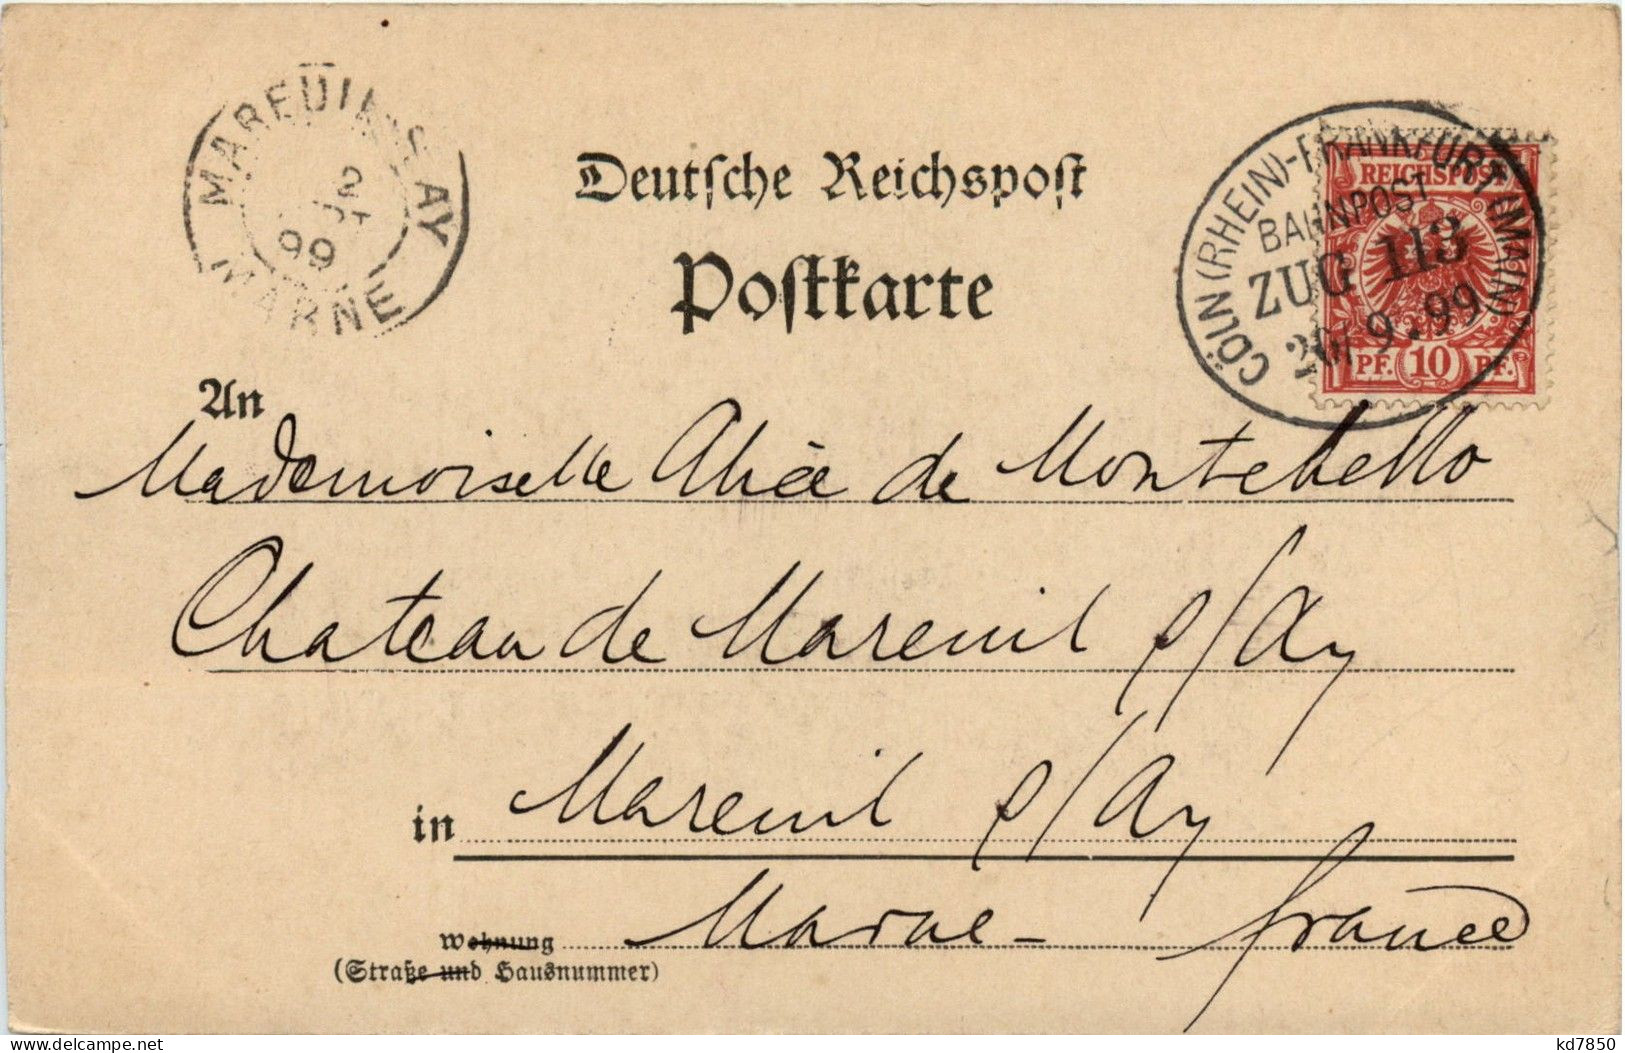 MAREUIL-S-AY
2
99
MARNE
Deutsche Reichspost
Postkarte
CÖLN (RHEIN)-FRANKFURT (MAIN)
BAHNPOST
ZUG 113
9.99
REICHSPOST
PF. 10 PF.
An
Mademoiselle Alice de Montebello
Chateau de Mareuil s/Ay
in Mareuil s/Ay
Marne - France
Wohnung
(Straße und Hausnummer)
delcampe.net
kd7850